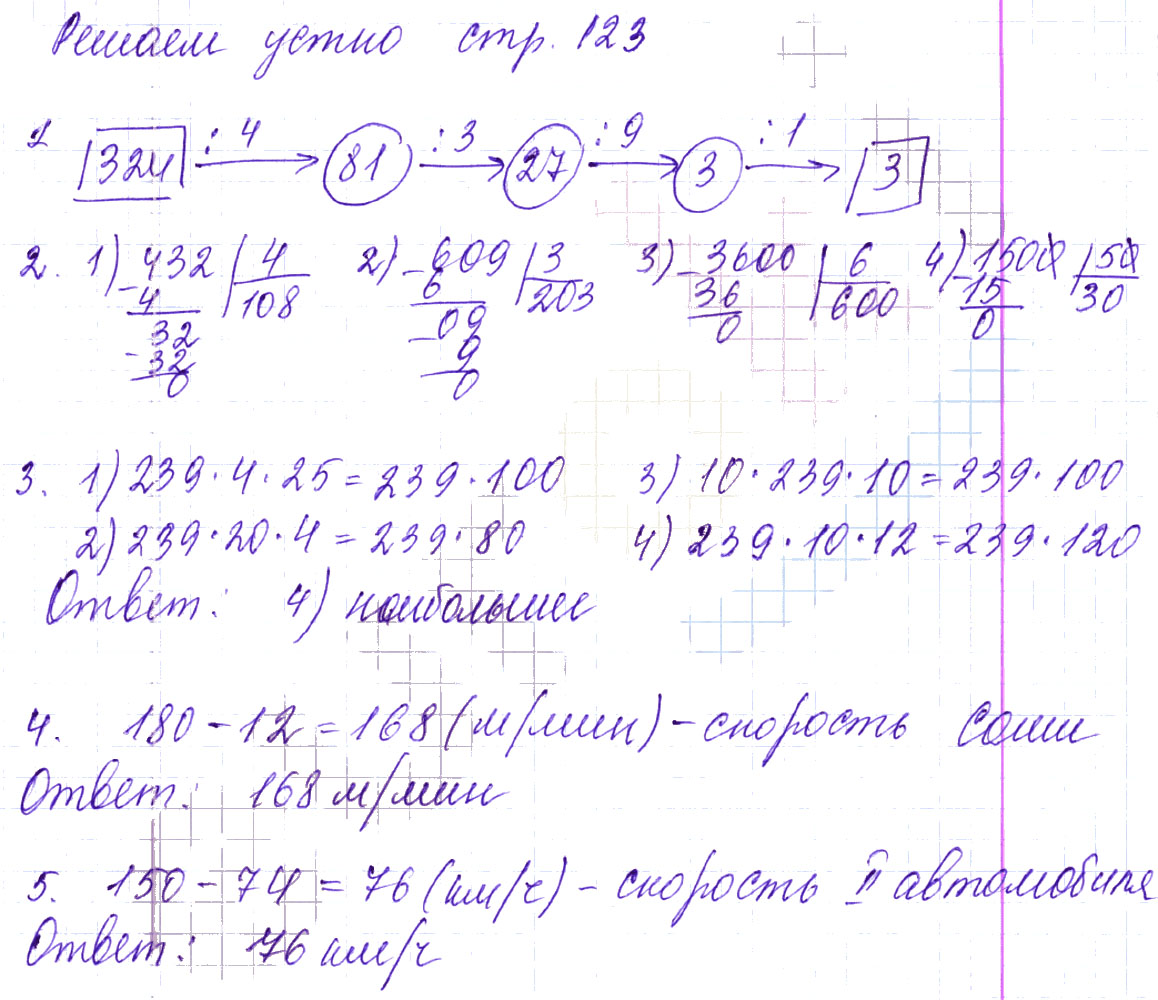 Решаем устно стр. 123
1 324 : 4 → 81 : 3 → 27 : 9 → 3 : 1 → 3
2. 1) 432 | 4 2) 609 | 3 3) 3600 | 6 4) 1500 | 50
- 4 108 - 6 203 - 36 600 - 15 30
32 09 0 0
- 32 - 9
0 0
3. 1) 239 · 4 · 25 = 239 · 100 3) 10 · 239 · 10 = 239 · 100
2) 239 · 20 · 4 = 239 · 80 4) 239 · 10 · 12 = 239 · 120
Ответ: 4) наибольшее
4. 180 - 12 = 168 (м/мин) - скорость Саши
Ответ: 168 м/мин
5. 150 - 74 = 76 (км/ч) - скорость II автомобиля
Ответ: 76 км/ч